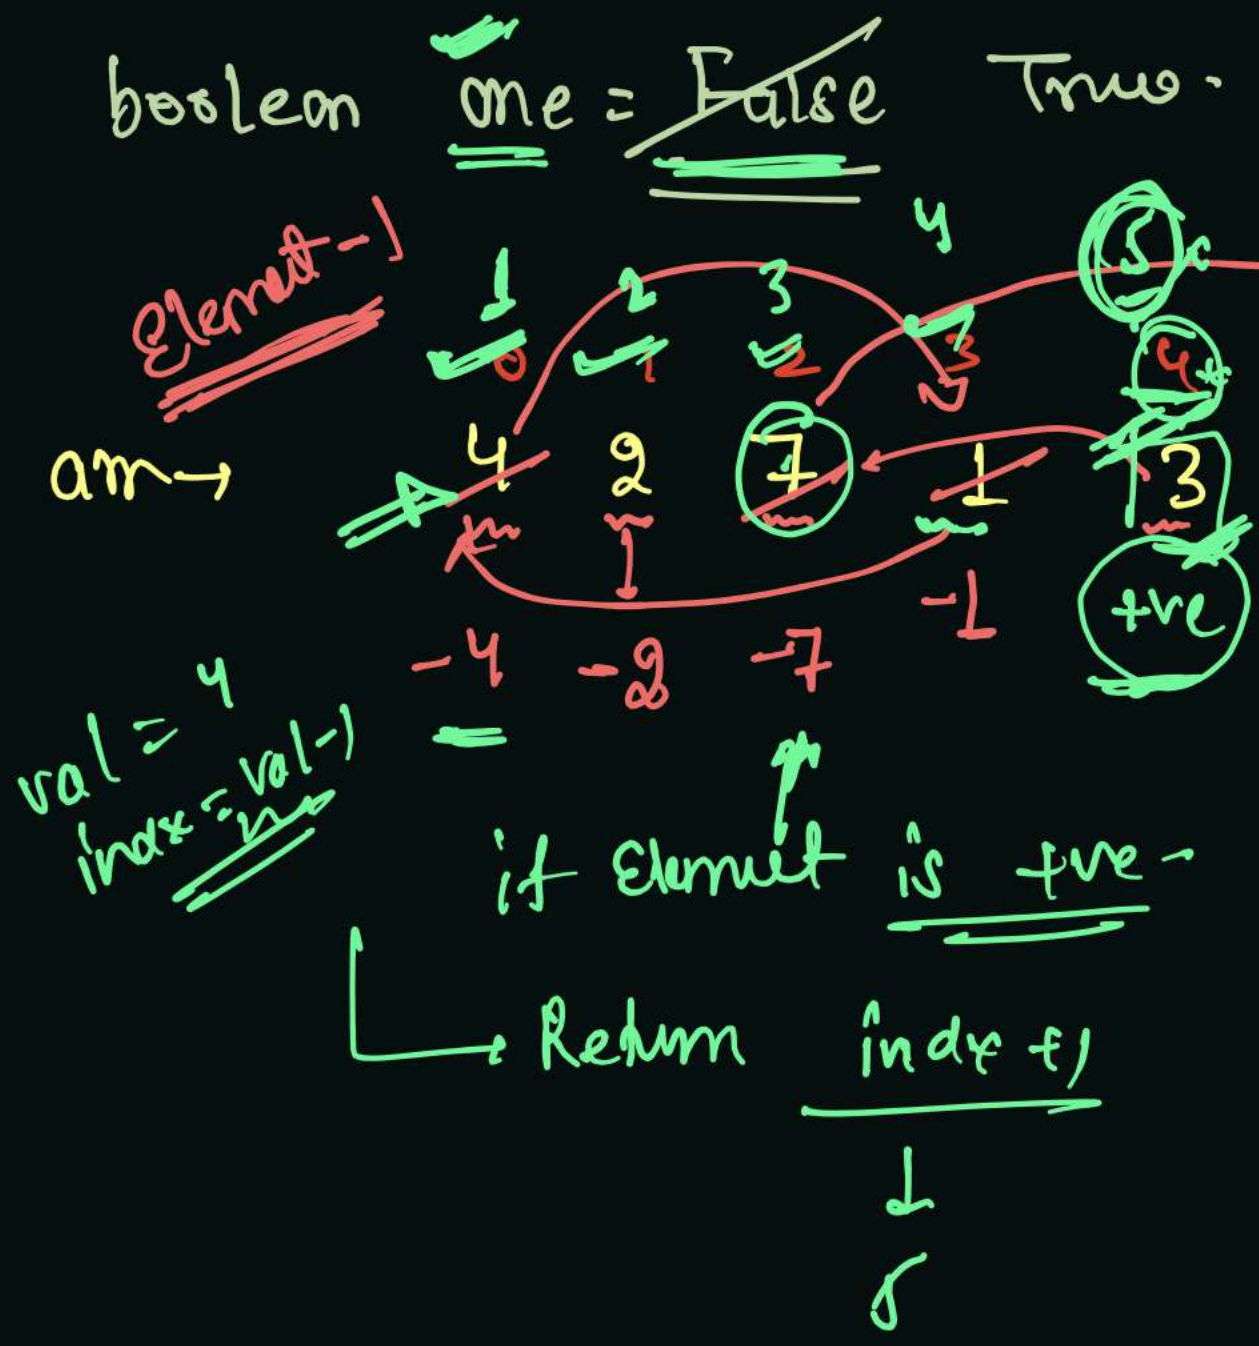 boolean one = False True.
Element-1
1 2 3 4 5
0 1 2 3 4
arr→ 4 2 7 1 3
-4 -2 -7 -1 +ve
val = 4
indx = val-1
if Element is +ve -
Return indx +1
5